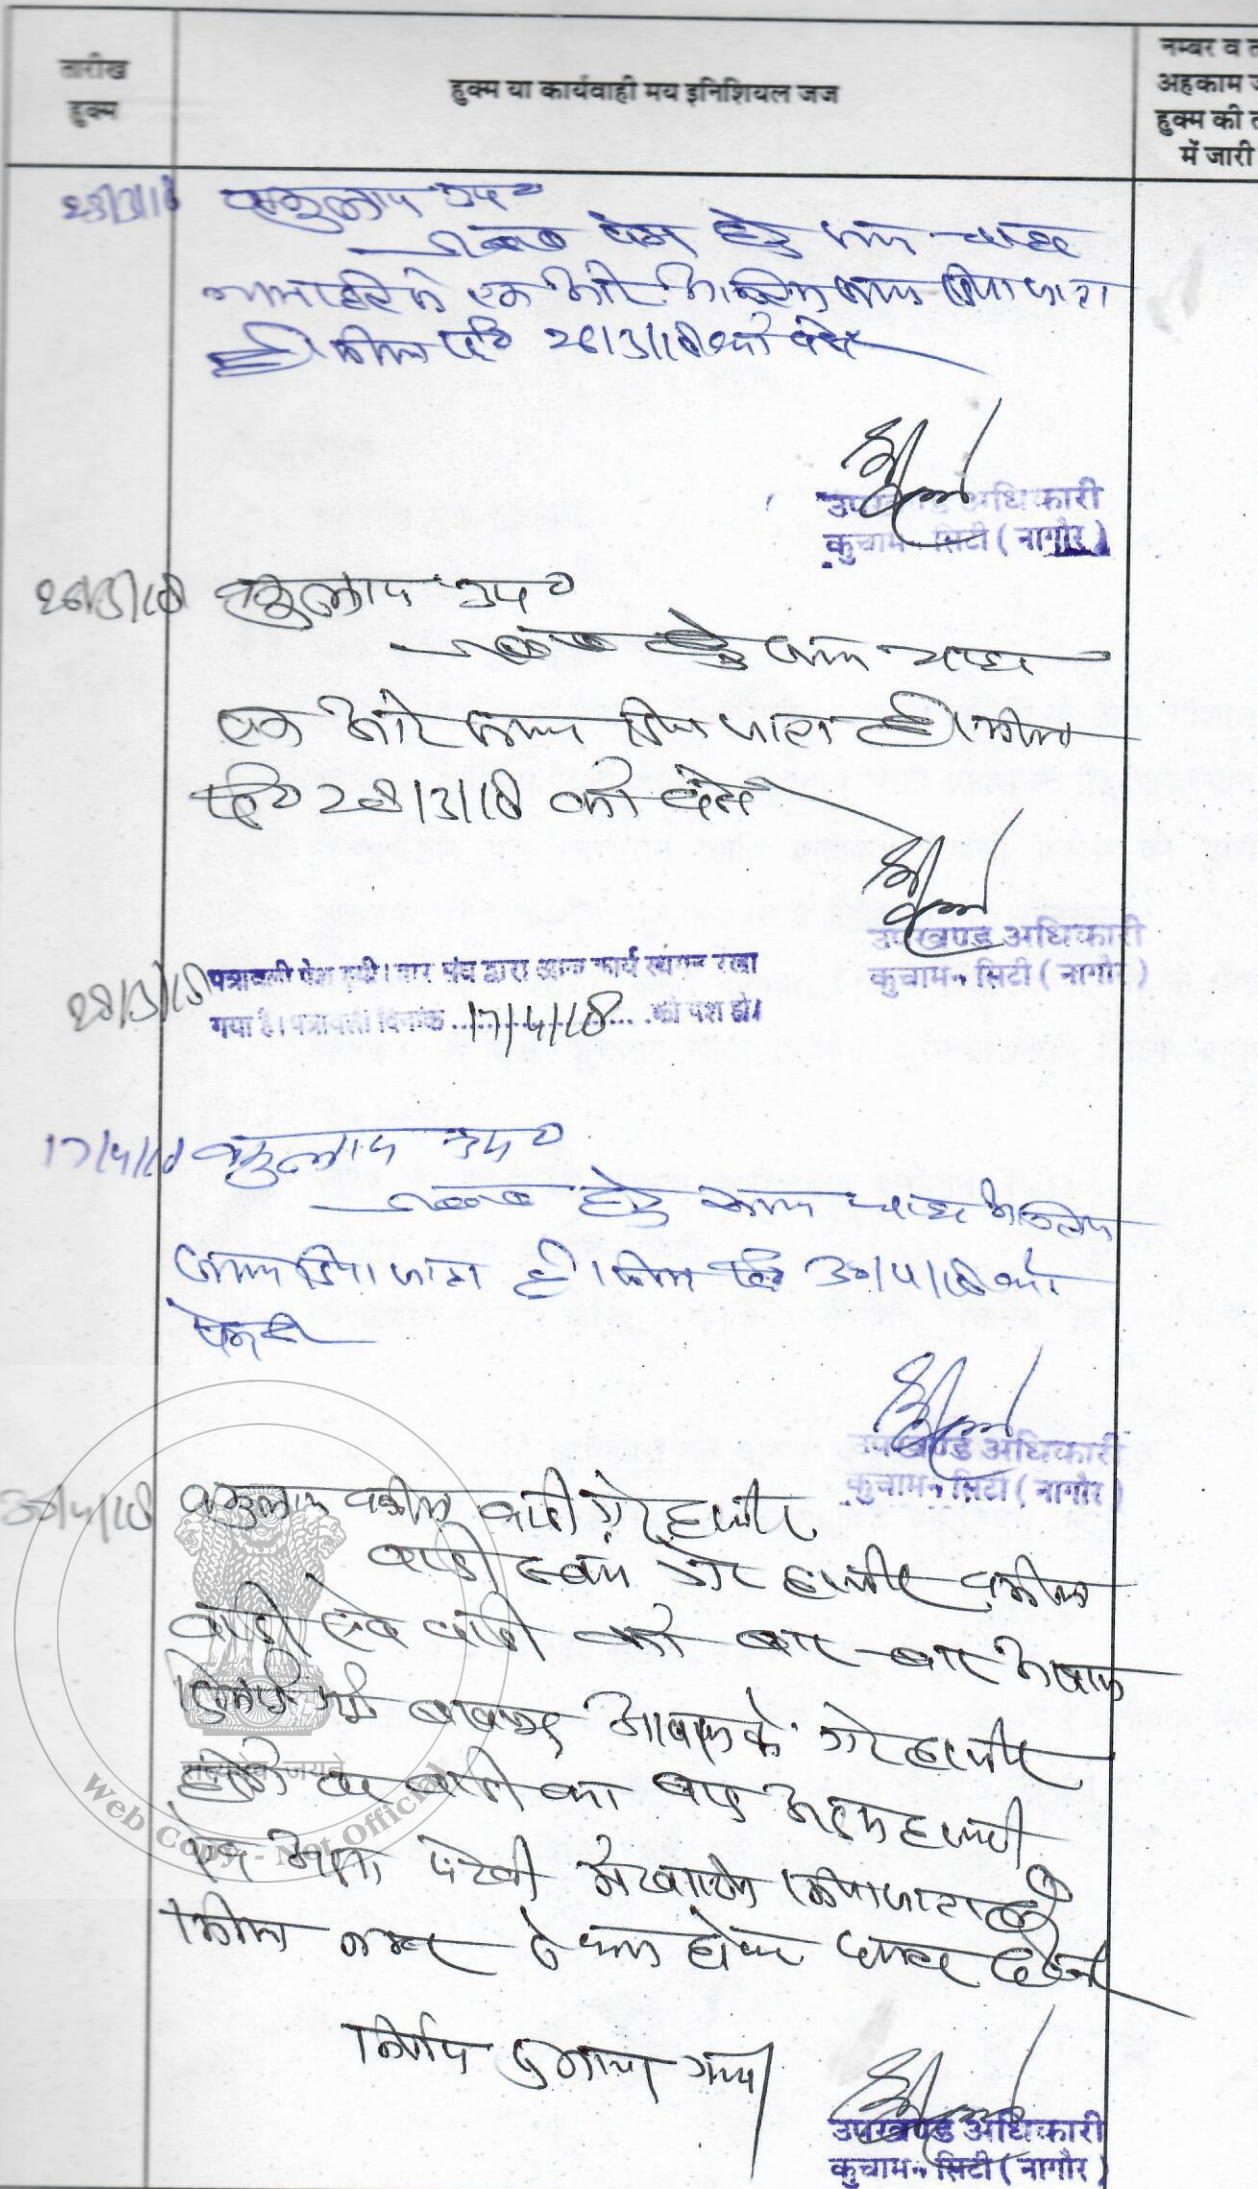 तारीख
हुक्म
हुक्म या कार्यवाही मय इनिशियल जज
नम्बर व
अहकाम
हुक्म की
में जारी
वकुलाय उप०
जवाब पेश हेतु समय चाहा
एक और अन्तिम समय दिया जाता
है। मिसल दि० 26/3/18 को पेश
उपखण्ड अधिकारी
कुचामन सिटी (नागौर)
26/3/18 वकुलाय उप०
जवाब हेतु समय चाहा
एक और समय दिया जाता है। मिसल
दि० 28/3/18 को पेश
उपखण्ड अधिकारी
कुचामन सिटी (नागौर)
28/3/18 पत्रावली पेश हुयी। बार संघ द्वारा आज कार्य स्थगन रखा
गया है। पत्रावली दिनांक 17/4/18 को पेश हो।
17/4/18 वकुलाय उप०
जवाब हेतु समय चाहा अन्तिम
समय दिया जाता है। मिसल दि० 30/4/18 को
पेश हो
उपखण्ड अधिकारी
कुचामन सिटी (नागौर)
30/4/18 वकुलाय वकील वादी गैर हाजीर
वादी स्वयं गैर हाजीर वकील
वादी एवं वादी को बार-बार आवाज
दिलाई गई बावजूद आवाज के गैर हाजीर
होने पर वादी का वाद अदम हाजरी
एवं अदम पैरवी में खारीज किया जाता है
मिसल नम्बर से कम होकर दाखिल दफ्तर
निर्णय सुनाया गया
उपखण्ड अधिकारी
कुचामन सिटी (नागौर)
सत्यमेव जयते
Web Copy - Not Official